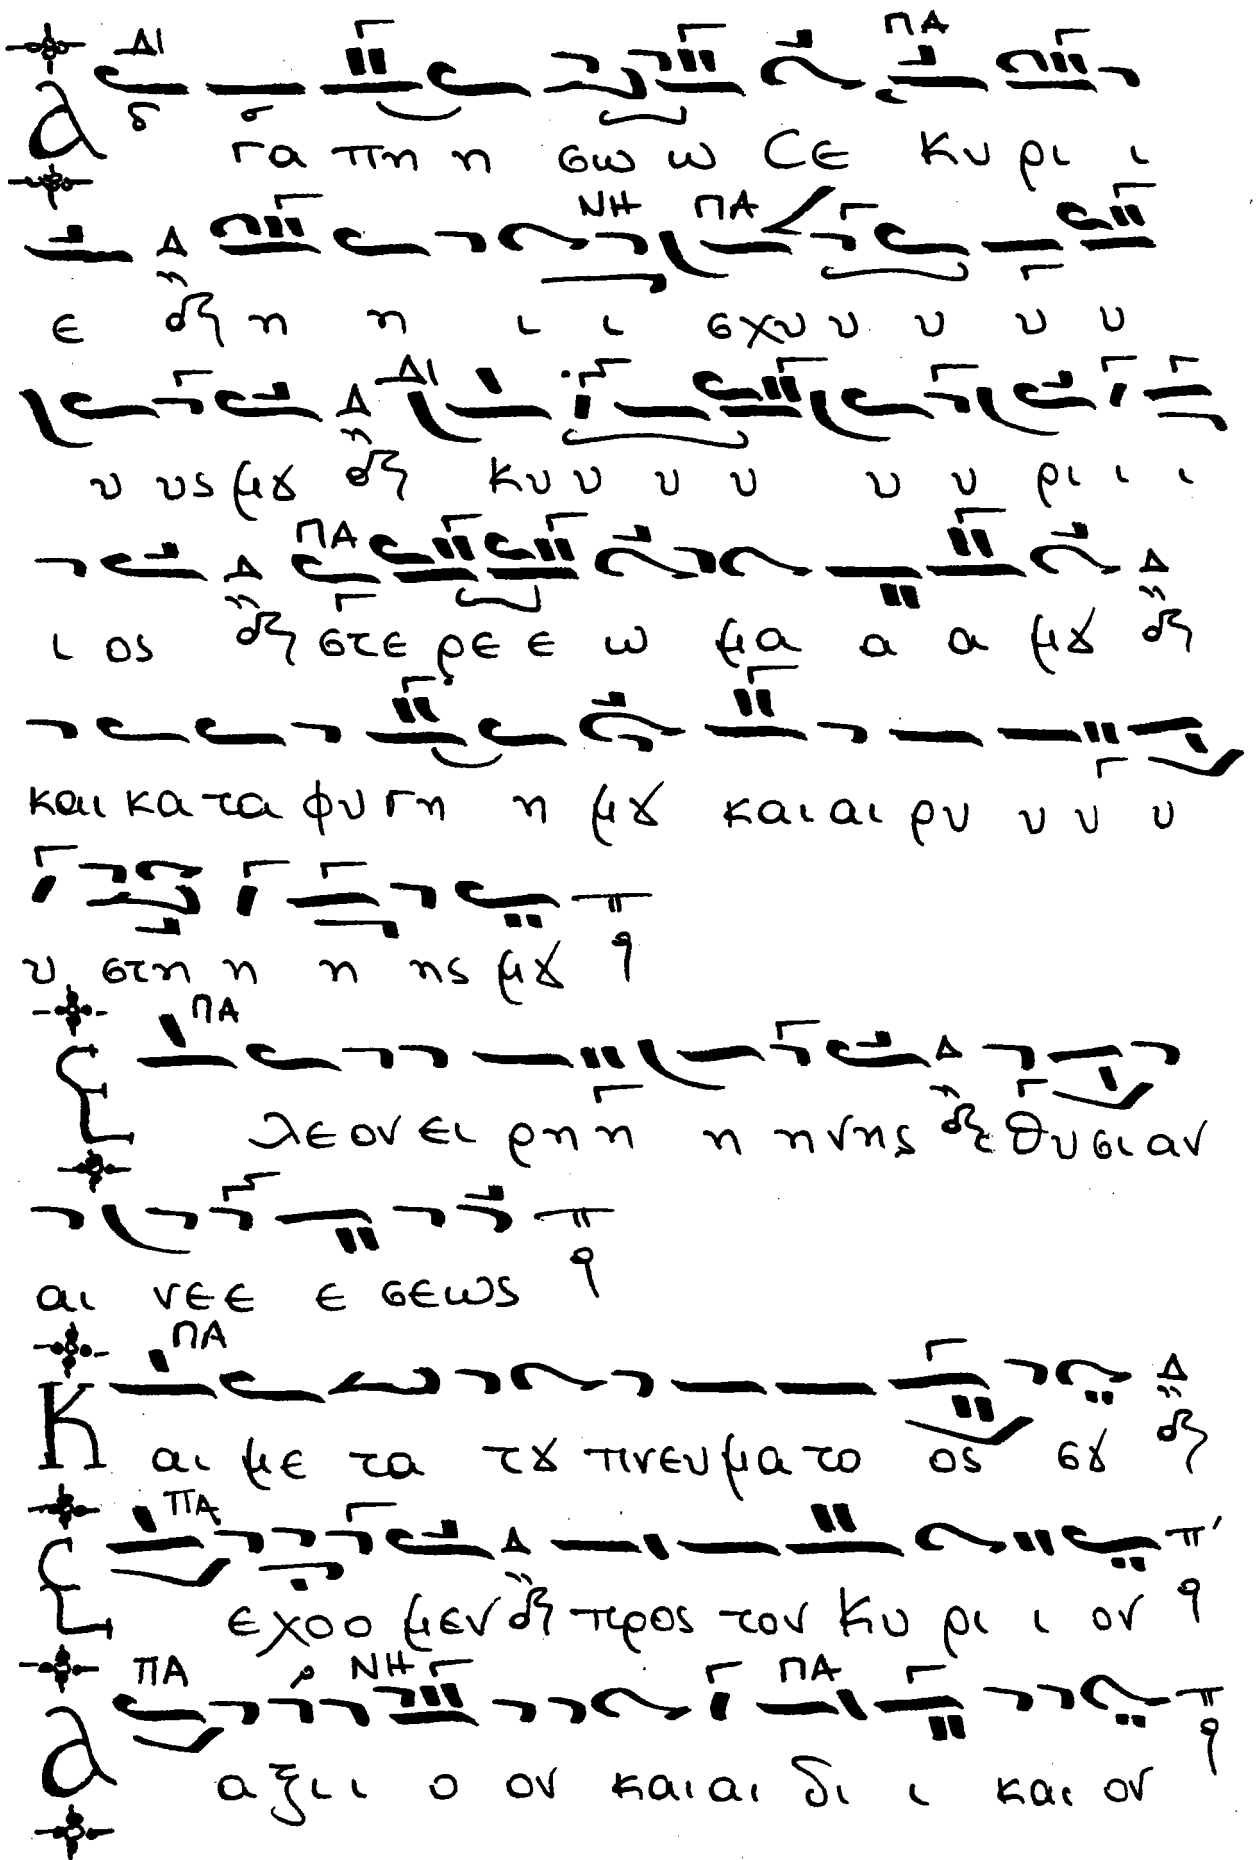 ΔΙ ΠΑ
Α γα πη η σω ω Σε Κυ ρι ι
ΝΗ ΠΑ
ε Δ η η ι ι σχυ υ υ υ υ
ΔΙ
υ υς μȣ Δ Κυ υ υ υ υ υ ρι ι ι
ΠΑ
ι ος Δ στε ρε ε ω μα α α μȣ Δ
και κα τα φυ γη η μȣ και αι ρυ υ υ υ
υ στη η η ης μȣ π q
ΠΑ
Ε λε ον ει ρη η η η νης Δ θυ σι αν
αι νε ε ε σε ως π q
ΠΑ
Κ αι με τα τȣ πνευ μα το ος σȣ Δ
ΠΑ
Ε ε χο ο μεν Δ προς τον Κυ ρι ι ον π q
ΠΑ ΝΗ ΠΑ
Α α ξι ι ο ον και αι δι ι και ον π q